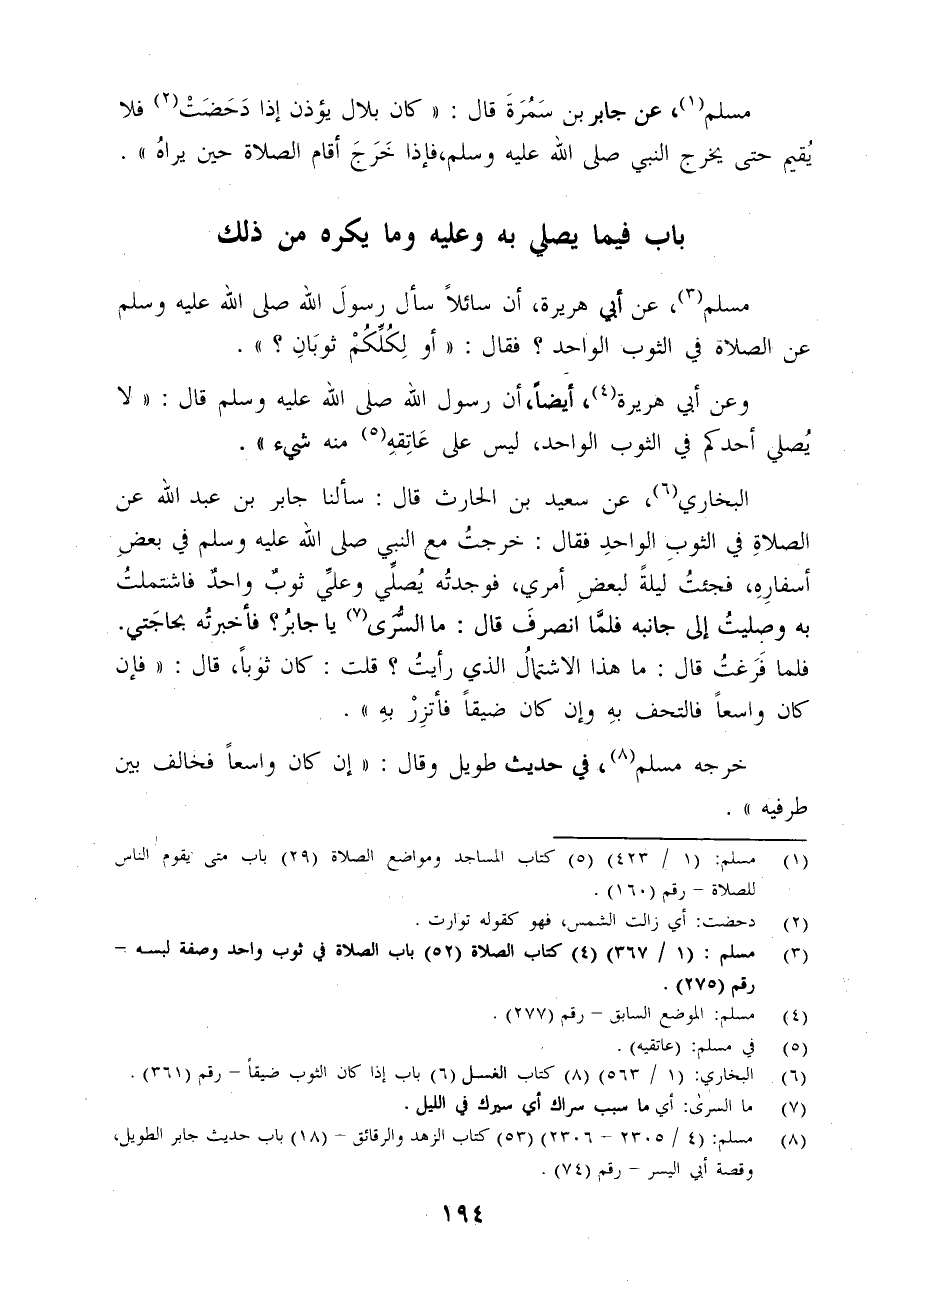 مسلم(١)، عن جابر بن سَمُرَةَ قال : « كان بلال يؤذن إذا دَحَضَتْ(٢) فلا
يُقيم حتى يخرج النبي صلى الله عليه وسلم،فإذا خَرَجَ أقام الصلاة حين يراهُ » .
باب فيما يصلي به وعليه وما يكره من ذلك
مسلم(٣)، عن أبي هريرة، أن سائلاً سأل رسولَ الله صلى الله عليه وسلم
عن الصلاة في الثوب الواحد ؟ فقال : « أو لِكُلِّكُمْ ثوبَانِ ؟ » .
وعن أبي هريرة(٤)، أيضاً، أن رسول الله صلى الله عليه وسلم قال : « لا
يُصلي أحدكم في الثوب الواحد، ليس على عَاتِقهِ(٥) منه شيء » .
البخاري(٦)، عن سعيد بن الحارث قال : سألنا جابر بن عبد الله عن
الصلاةِ في الثوبِ الواحدِ فقال : خرجتُ مع النبي صلى الله عليه وسلم في بعضِ
أسفارِهِ، فجئتُ ليلةً لبعضِ أمري، فوجدتُه يُصلِّي وعليِّ ثوبٌ واحدٌ فاشتملتُ
به وصليتُ إلى جانبه فلمَّا انصرفَ قال : ما السُّرَى(٧) يا جابرُ؟ فأخبرتُه بحاجَتي.
فلما فَرَغتُ قال : ما هذا الاشتمالُ الذي رأيتُ ؟ قلت : كان ثوباً، قال : « فإن
كان واسعاً فالتحف بهِ وإن كان ضيقاً فأتزِرْ بهِ » .
خرجه مسلم(٨)، في حديث طويل وقال : « إن كان واسعاً فخالف بين
طرفيه » .
(١) مسلم: (١ / ٤٢٣) (٥) كتاب المساجد ومواضع الصلاة (٢٩) باب متى يقوم الناس
للصلاة – رقم (١٦٠) .
(٢) دحضت: أي زالت الشمس، فهو كقوله توارت .
(٣) مسلم : (١ / ٣٦٧) (٤) كتاب الصلاة (٥٢) باب الصلاة في ثوب واحد وصفة لبسه –
رقم (٢٧٥) .
(٤) مسلم: الموضع السابق – رقم (٢٧٧) .
(٥) في مسلم: (عاتقيه) .
(٦) البخاري: (١ / ٥٦٣) (٨) كتاب الغسل (٦) باب إذا كان الثوب ضيقاً – رقم (٣٦١) .
(٧) ما السرى: أي ما سبب سراك أي سيرك في الليل .
(٨) مسلم: (٤ / ٢٣٠٥ – ٢٣٠٦) (٥٣) كتاب الزهد والرقائق – (١٨) باب حديث جابر الطويل،
وقصة أبي اليسر – رقم (٧٤) .
١٩٤